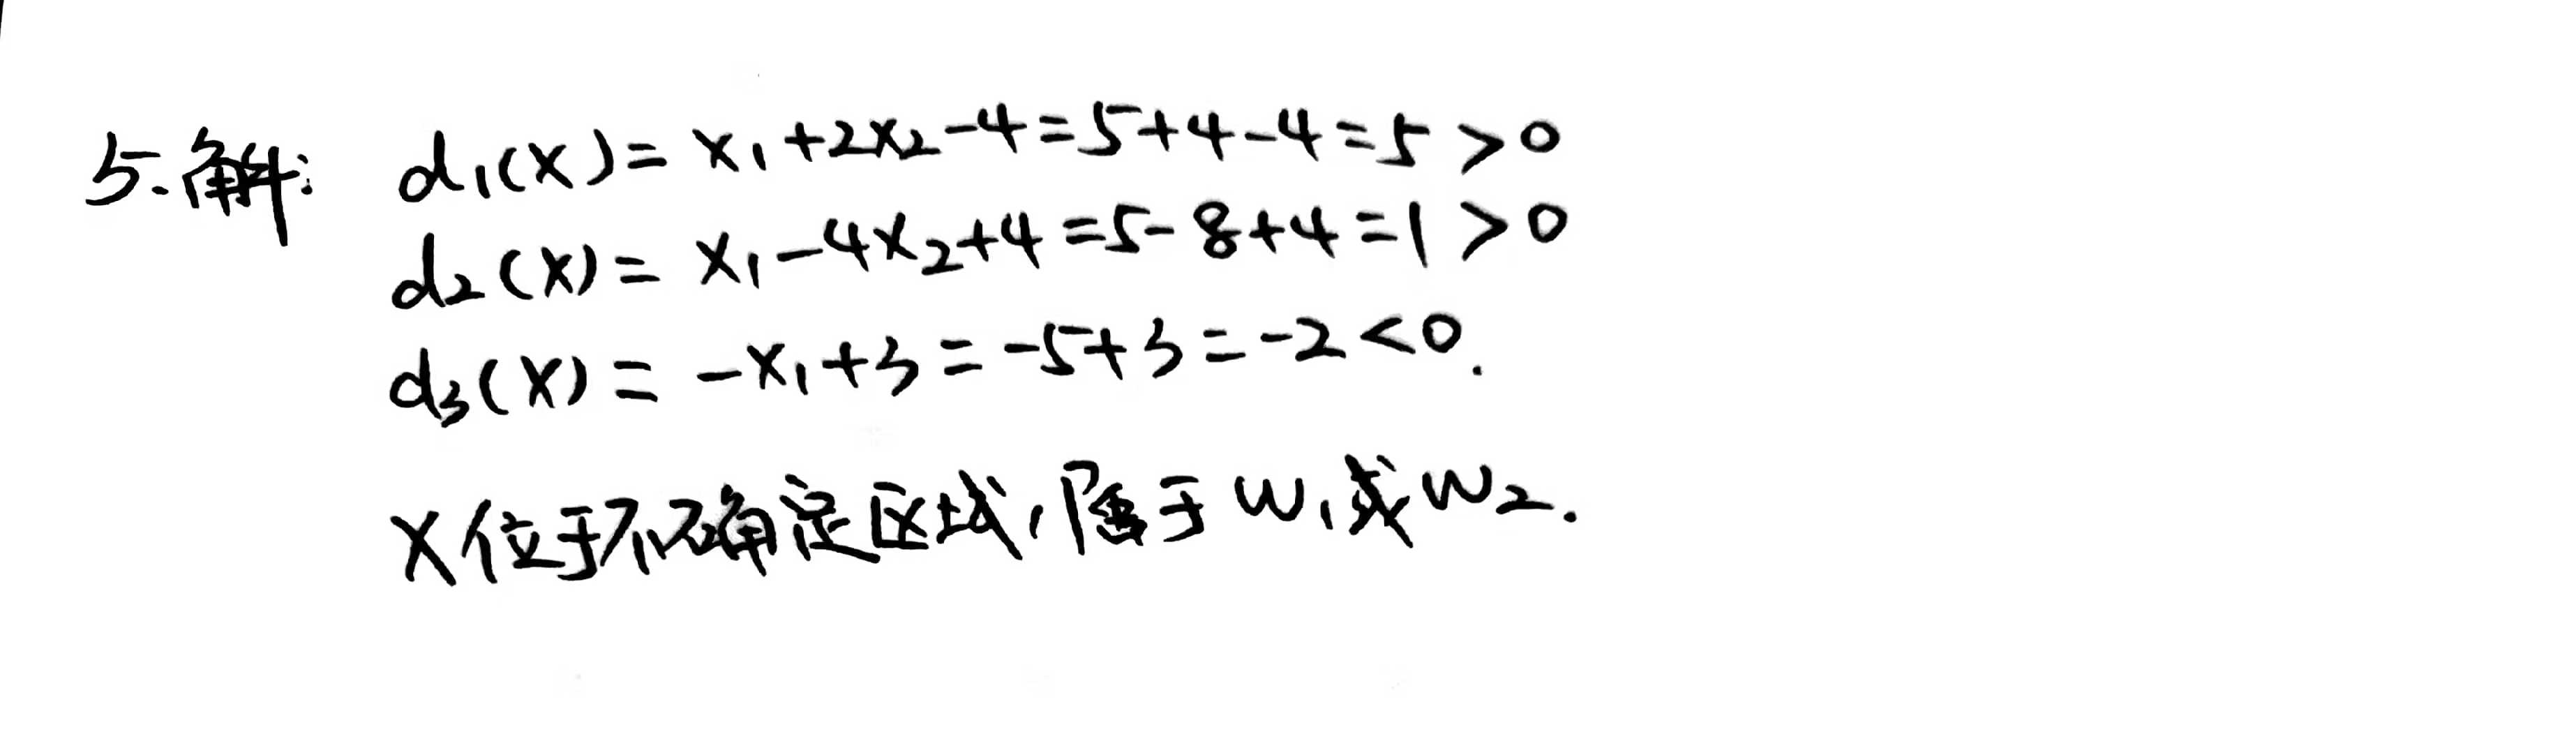 5.解: d₁(x)= x₁+2x₂-4=5+4-4=5>0
d₂(x)= x₁-4x₂+4=5-8+4=1>0
d₃(x)= -x₁+3=-5+3=-2<0.
X位于不确定区域,属于w₁或w₂.